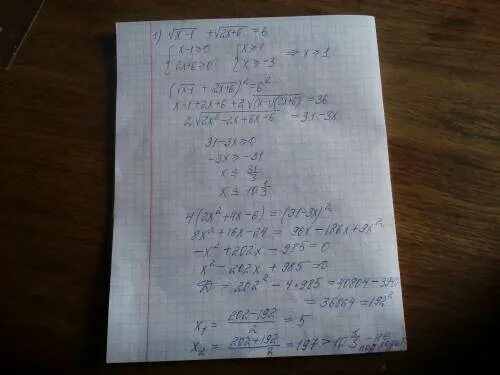 1) √x-1 + √2x+6 = 6
{ x-1≥0 { x≥1 ⇒ x≥1
{ 2x+6≥0 { x≥-3
(√x-1 + √2x+6)² = 6²
x-1+2x+6+2√(x-1)(2x+6) = 36
2√2x²-2x+6x-6 = 31-3x
31-3x≥0
-3x≥-31
x ≤ 31/3
x ≤ 10 1/3
4(2x²+4x-6) = (31-3x)²
8x²+16x-24 = 961-186x+9x²
-x²+202x-985=0
x²-202x+985=0
D = 202²-4·985 = 40804-3940
= 36864 = 192²
x₁ = (202-192)/2 = 5
x₂ = (202+192)/2 = 197 > 10 1/3 - не
подходит